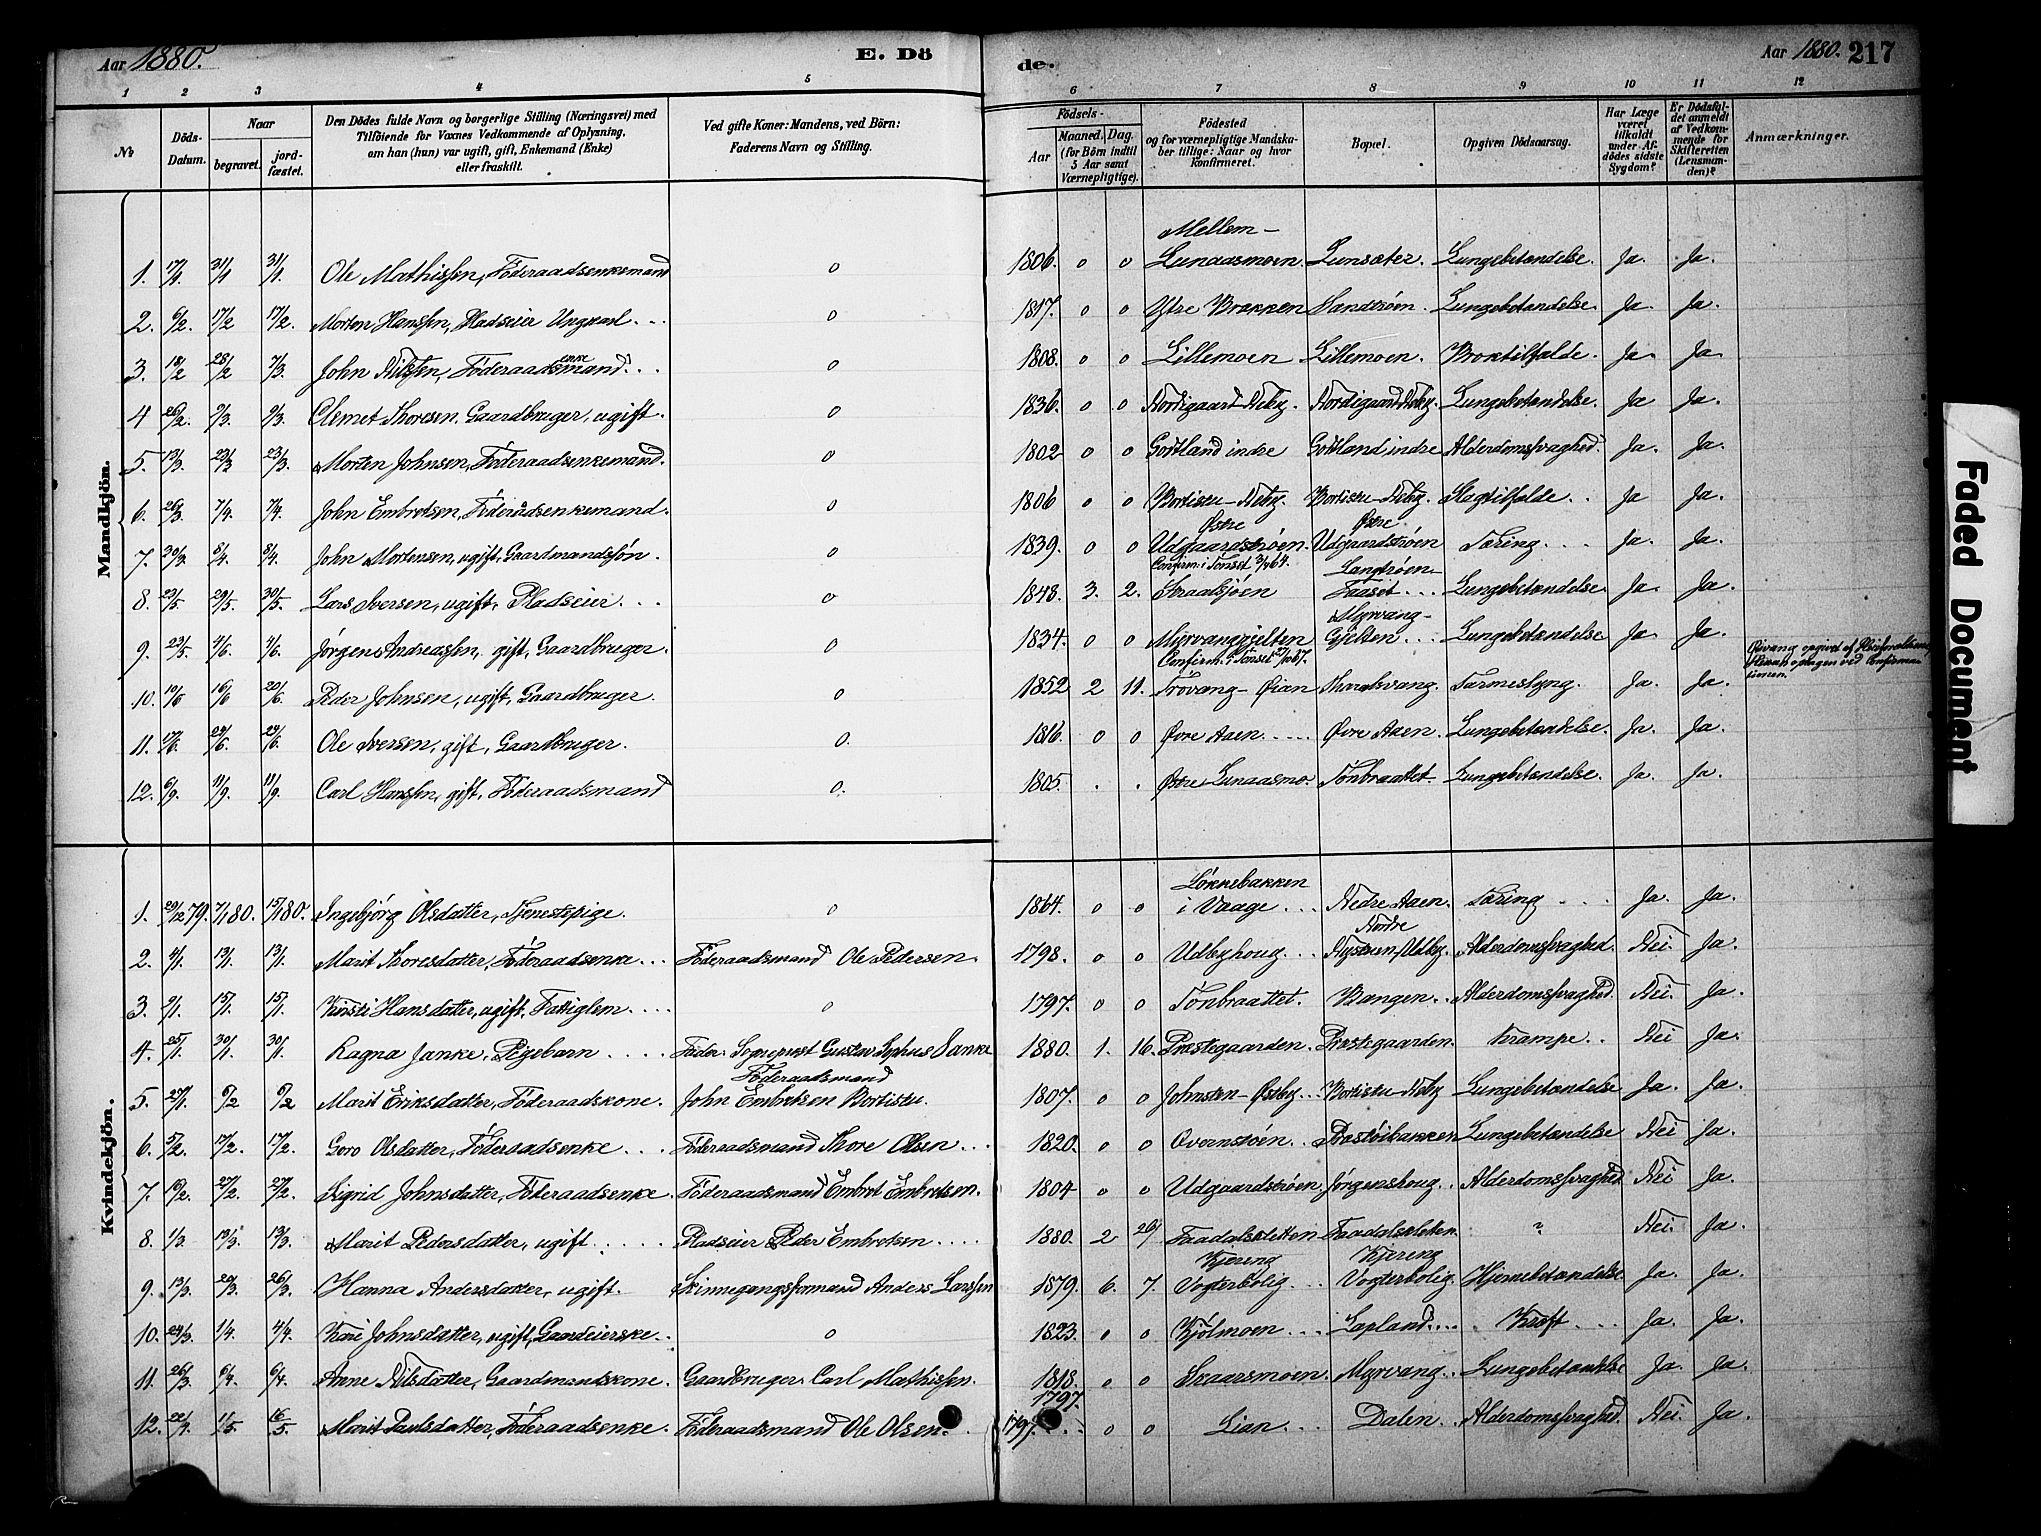 Aar 1880.
E. Dö
de.
Aar 1880. 217
1 2 3 4 5 6 7 8 9 10 11 12
No
Döds-Datum.
Naar
begravet.
jord-fæstet.
Den Dödes fulde Navn og borgerlige Stilling (Næringsvei) med
Tilföiende for Voxnes Vedkommende af Oplysning,
om han (hun) var ugift, gift, Enkemand (Enke)
eller fraskilt.
Ved gifte Koner: Mandens, ved Börn:
Faderens Navn og Stilling.
Födsels-
Aar
Maaned. Dag.
(for Börn indtil
5 Aar samt
Værnepligtige).
Födested
og for værnepligtige Mandska-
ber tillige: Naar og hvor
konfirmeret.
Bopæl.
Opgiven Dödsaarsag.
Har Læge
været
tilkaldt
under Af-
dödes sidste
Sygdom?
Er Dödsfal-
det anmeldt
af Vedkom-
mende for
Skifteretten
(Lensman-
den)?
Anmærkninger.
Mandkjön.
1. 17/1 31/1 31/1 Ole Mathissen, Föderaadsenkemand 0 1806. 0 0 Mellem-Lunaasmoen. Lunsæter. Lungebetændelse. Ja. Ja.
2. 6/2. 17/2 17/2. Morten Hanssen, Pladseier Ungkarl 0 1817. 0 0 Ytre Brækken Sandtröen. Lungebetændelse. Ja Ja.
3. 18/2 28/2 7/3. John Nilssen, Föderaadsenkemand. 0 1808. 0 0 Lillemoen Lillemoen. Broktilfælde. Ja. Ja.
4 26/2. 9/3. 9/3. Clemet Thoresen. Gaardbruger, ugift. 0 1836. 0 0 Nordigaard Neby. Nordigaard Neby. Lungebetændelse. Ja Ja.
5. 13/3. 23/3 23/3. Morten Johnsen, Föderaadsenkemand. 0 1802 0 0 Godtland indre Godtland indre Alderdomssvaghed. Ja. Ja.
6. 26/3. 7/4. 7/4. John Embretsen, Föderaadsenkemand. 0 1806 0 0 Bortistu-Neby. Bortistu-Neby. Slagtilfælde. Ja Ja.
7. 30/3. 8/4. 8/4. John Mortensen, ugift, Gaardmandssön. 0 1839. 0 0 Østre Udgaardströen. Østre Udgaardströen Tæring. Ja. Ja.
8. 23/5. 29/5. 30/5. Lars Iversen, ugift, Pladseier. 0 1848. 3. 2. Confirm: i Tönset Savalsjöen Langtröen- Faaset Lungebetændelse Ja. Ja.
9. 23/5. 4/6. 4/6. Jörgen Andreassen, gift, Gaardbruger. 0 1834. 0 0 Myrvanggjelten Myrvang-Gjelten Lungebetændelse Ja. Ja.
10. 10/6 16/6 20/6. Peder Johnsen, ugift, Gaardbruger. 0 1852 2 11. Confirm. i Tönset Trövang-Øian Tharaldsvang. Tarmeslyng. Ja. Ja.
11. 17/6. 24/6. 24/6. Ole Iversen, gift, Gaardbruger. 0. 1816. 0 0 Øvre Aaen Øvre Aaen. Lungebetændelse. Ja. Ja.
12. 6/9. 11/9. 11/9. Carl Hanssen, gift, Föderaadsmand 0. 1805. . . Østre Lunaasmo. Tonbraattet. Lungebetændelse. Ja. Ja.
Kvindekjön.
1. 29/12 79. 7/1 80. 15/1 80. Ingebjörg Olsdatter, Tjenestepige. 0 1864. 0 0 Løkkebakken i Vaage Nedre Aaen. Tæring Ja. Ja.
2. 4/1. 13/1. 13/1. Marit Thoresdatter, Föderaadsenke Föderaadsmand Ole Pedersen. 1798. 0 0 Udbyhoug Nordre Nystuen-Udby. Alderdomssvaghed. Nei. Ja.
3. 9/1. 15/1. 15/1. Kirsti Hansdatter, ugift, Fattiglem 0 1797. 0 0 Tonbraattet. Bangen. Alderdomssvaghed. Nei. Ja.
4. 25/1 30/1. 30/1. Ragna Janke, Pigebarn Fader. Sognepræst Gustav Sophus Janke 1880. 1. 16. Præstegaarden. Præstegaarden. Krampe. Nei Ja.
5. 27/1. 6/2 6/2 Marit Eriksdatter, Föderaadskone. Föderaadsmand John Embretsen Bortistu. 1807. 0 0 Johnsten-Østby Bortistu-Neby Lungebetændelse Ja. Ja.
6. 5/2. 17/2. 17/2. Goro Olsdatter, Föderaadsenke Föderaadsmand Thore Olsen 1820. 0 0 Qvernstöen. Præstöibakken Lungebetændelse Nei Ja.
7. 16/2. 27/2. 27/2. Sigrid Johnsdatter, Föderaadsenke. Föderaadsmand Embret Embretsen. 1804 0 0 Udgaardströen Jörgenshoug. Alderdomssvaghed Nei Ja.
8. 1/3. 13/3. 13/3. Marit Pedersdatter, ugift Pladseier Peder Embretsen 1880. 2 26 Faadalsletten Faadalsletten. ? Nei. Ja.
9. 13/3. 20/3. 26/3. Hanna Andersdatter, ugift. Skinnegangsformand Anders Larssen 1879. 6. 7. Kjereng Vogterbolig Kjereng Vogterbolig. Hjernebetændelse Ja. Ja.
10. 24/3. 1/4. 4/4. Kari Johnsdatter, ugift, Gaardeierske. 0 1823. 0 0 Kjölmoen Lapland Kræft Ja. Ja.
11. 26/3 6/4. 6/4. Anne Nilsdatter, Gaardmandskone. Gaardbruger. Carl Mathissen. 1818. 0 0 Svaarsmoen. Myrvang. Lungebetændelse Ja. Ja.
12. 22/4. 1/5. 16/5. Marit Paulsdatter, Föderaadsenke. Föderaadsmand Ole Olsen. 1797. 1797. 0 0 Lian Dalen. Alderdomssvaghed. Nei. Ja.
Faded Document